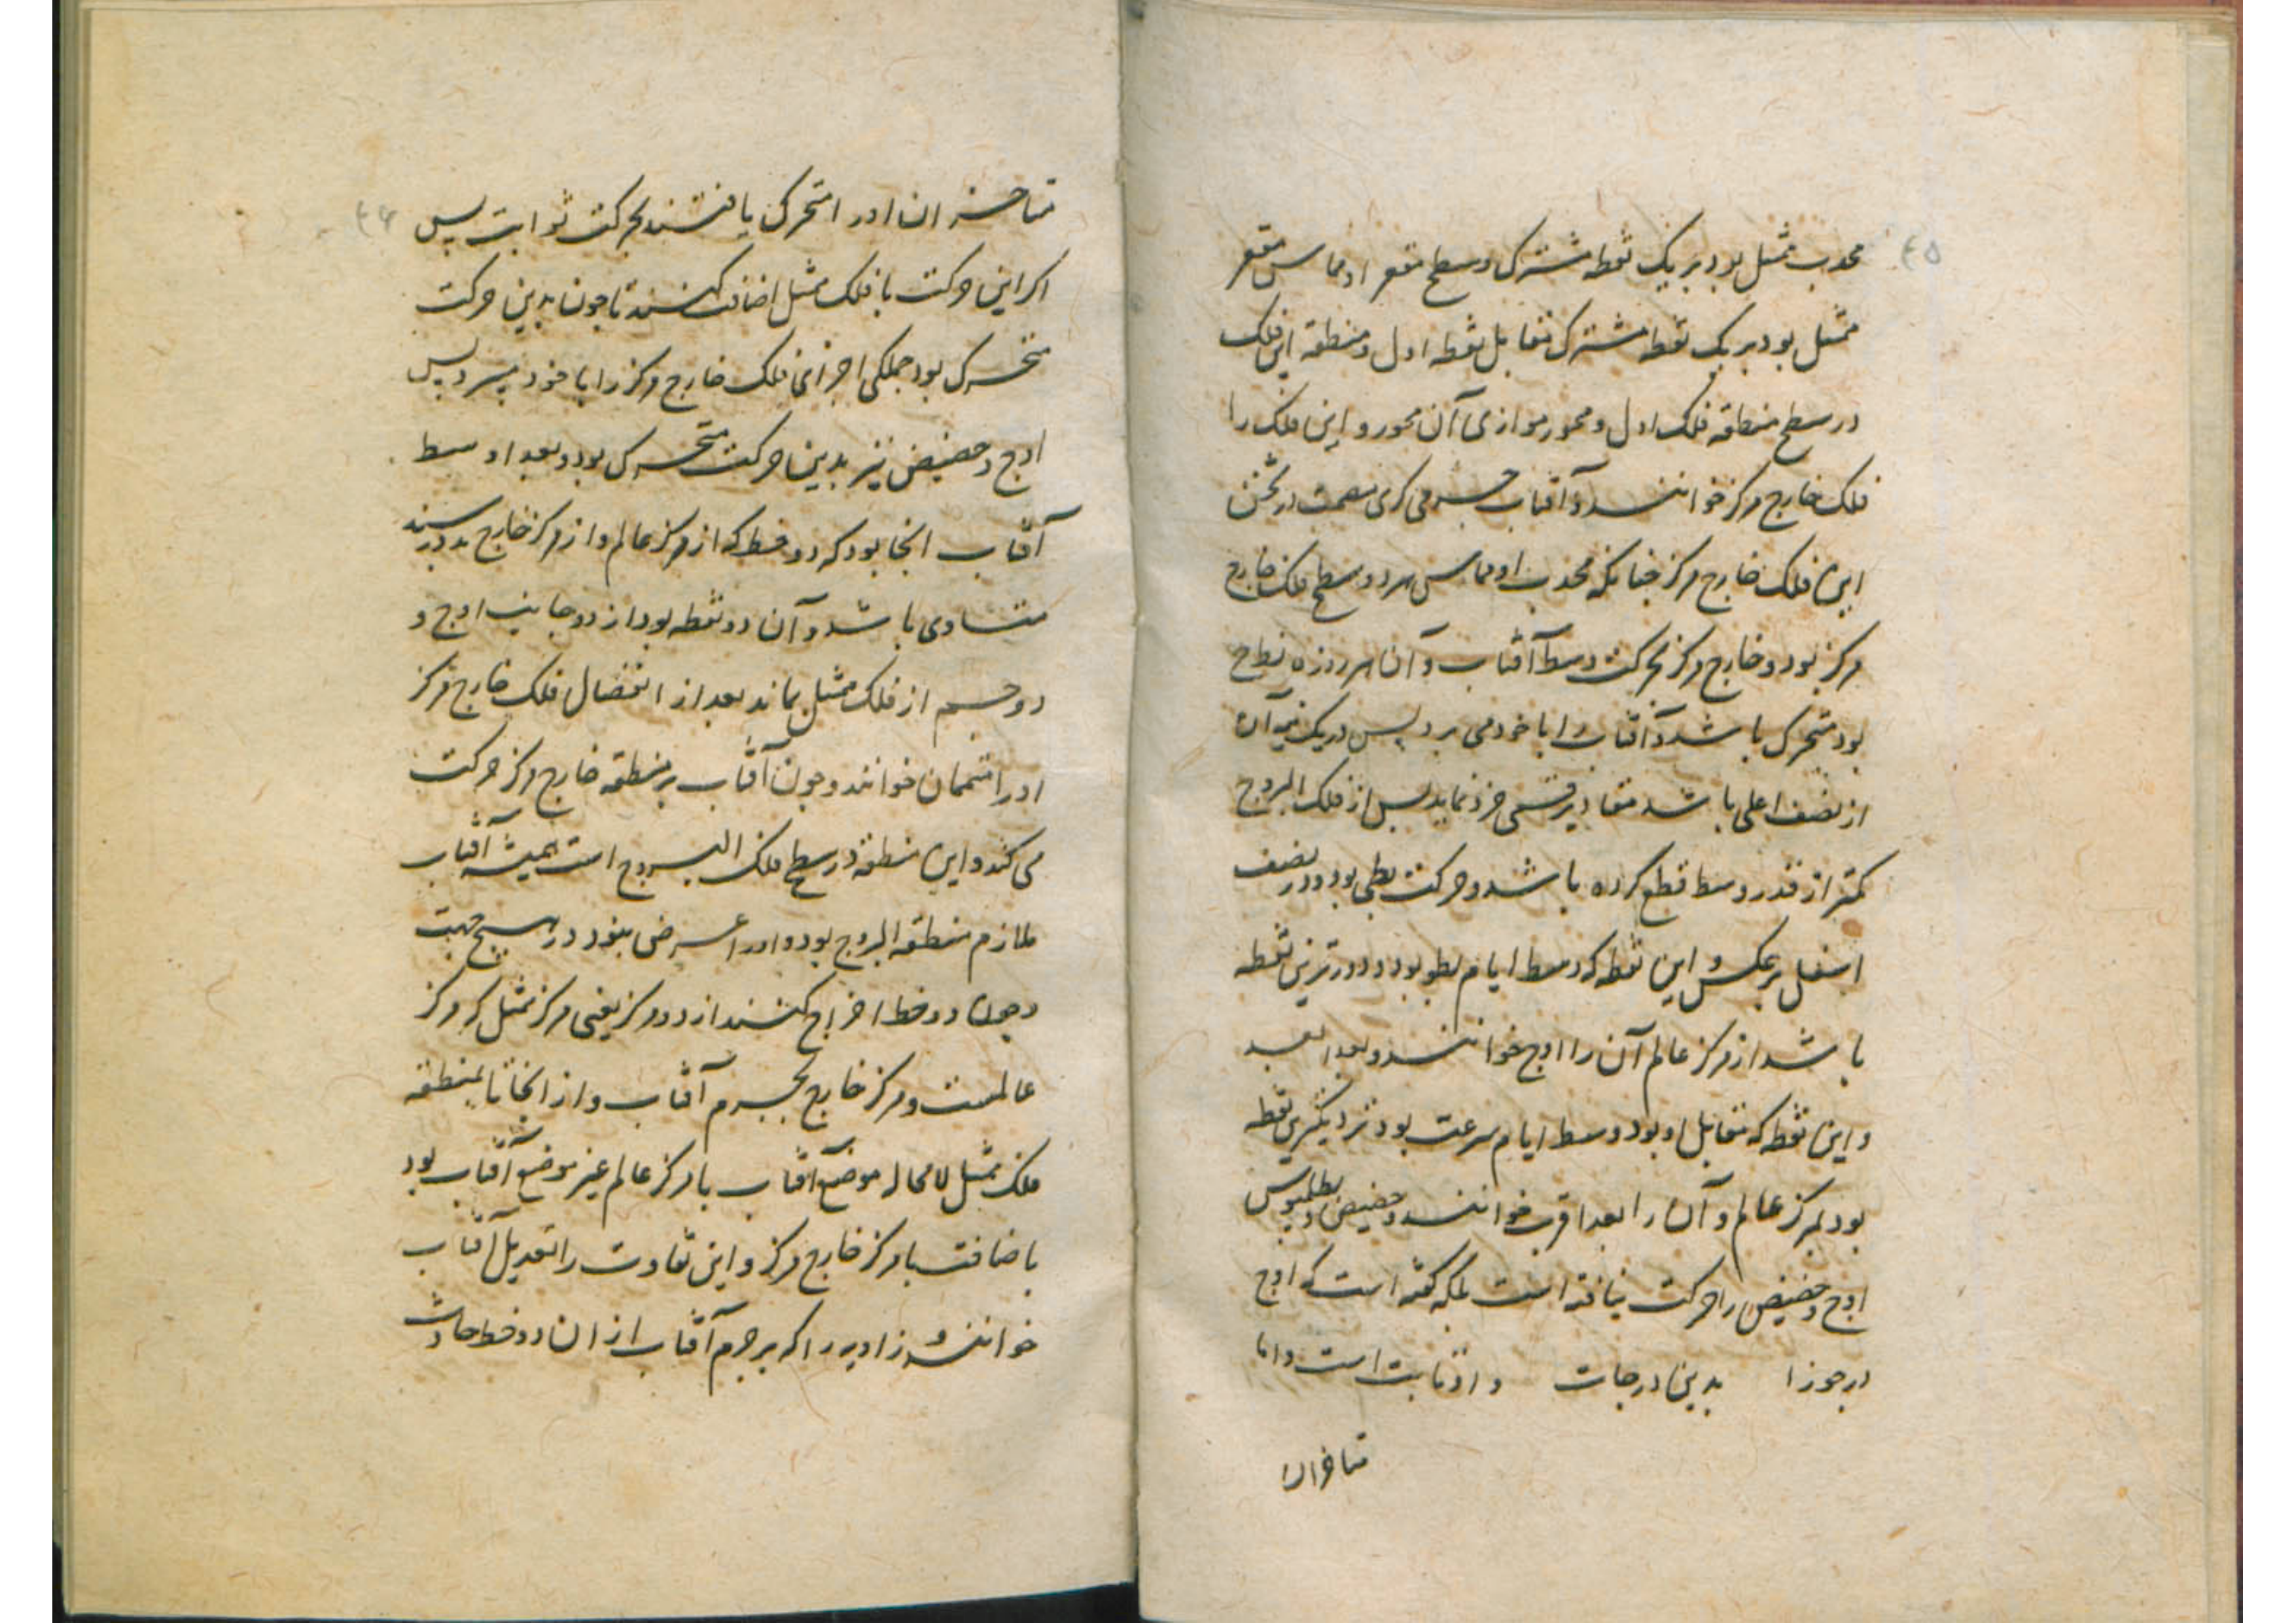 ۴۵
محدب ممثل بود بر یک نقطه مشترک و سطح مقعر او مماس مقعر
ممثل بود بر یک نقطه مشترک مقابل نقطه اول و منطقه این فلک
در سطح منطقه فلک اول و محور موازی آن محور و این فلک را
فلک خارج مرکز خوانند و آفتاب جرمی کری مصمت در ثخن
این فلک خارج مرکز چنانکه محدب او مماس هر دو سطح فلک خارج
مرکز بود و خارج مرکز بحرکت وسط آفتاب و آن هر روزه نط ح
بود متحرک باشد و آفتاب را با خود می برد پس در یک نیمه آن
از نصف اعلی باشد مقادیر قسی خرد نماید پس از فلک البروج
کمتر از قدر وسط قطع کرده باشد و حرکت بطی بود و در نصف
اسفل بر عکس و این نقطه که وسط ایام بطو بود و دورترین نقطه
باشد از مرکز عالم آن را اوج خوانند و بعد ابعد
و این نقطه که مقابل او بود وسط ایام سرعت بود نزدیکترین نقطه
بود بمرکز عالم و آن را بعد اقرب خوانند و حضیض و بطلمیوس
اوج و حضیض را حرکت نیافته است بلکه گفته است که اوج
در جوزا بدین درجات و او ثابت است و اما
متاخران
۴۶
متاخران او را متحرک یافتند بحرکت ثوابت پس
اگر این حرکت با فلک ممثل اضافت کنند تا چون بدین حرکت
متحرک بود جملکی اجزای فلک خارج مرکز را با خود ببرد پس
اوج و حضیض نیز بدین حرکت متحرک بود و بعد اوسط
آفتاب انجا بود که دو خط که از مرکز عالم و از مرکز خارج بدو رسند
متساوی باشد و آن دو نقطه بود از دو جانب اوج و
دو جسم از فلک ممثل بماند بعد از انفصال فلک خارج مرکز
او را متممان خوانند و چون آفتاب بر منطقه خارج مرکز حرکت
می کند و این منطقه در سطح فلک البروج است همیشه آفتاب
ملازم منطقه البروج بود و او را عرض نبود در هیچ جهت
و چون دو خط اخراج کنند از دو مرکز یعنی مرکز ممثل که مرکز
عالمست و مرکز خارج بجرم آفتاب و از انجا تا بمنطقه
فلک ممثل لا محاله موضع آفتاب با مرکز عالم غیر موضع آفتاب بود
باضافت با مرکز خارج مرکز و این تفاوت را تعدیل آفتاب
خوانند و زاویه را که بر جرم آفتاب از ان دو خط حادث